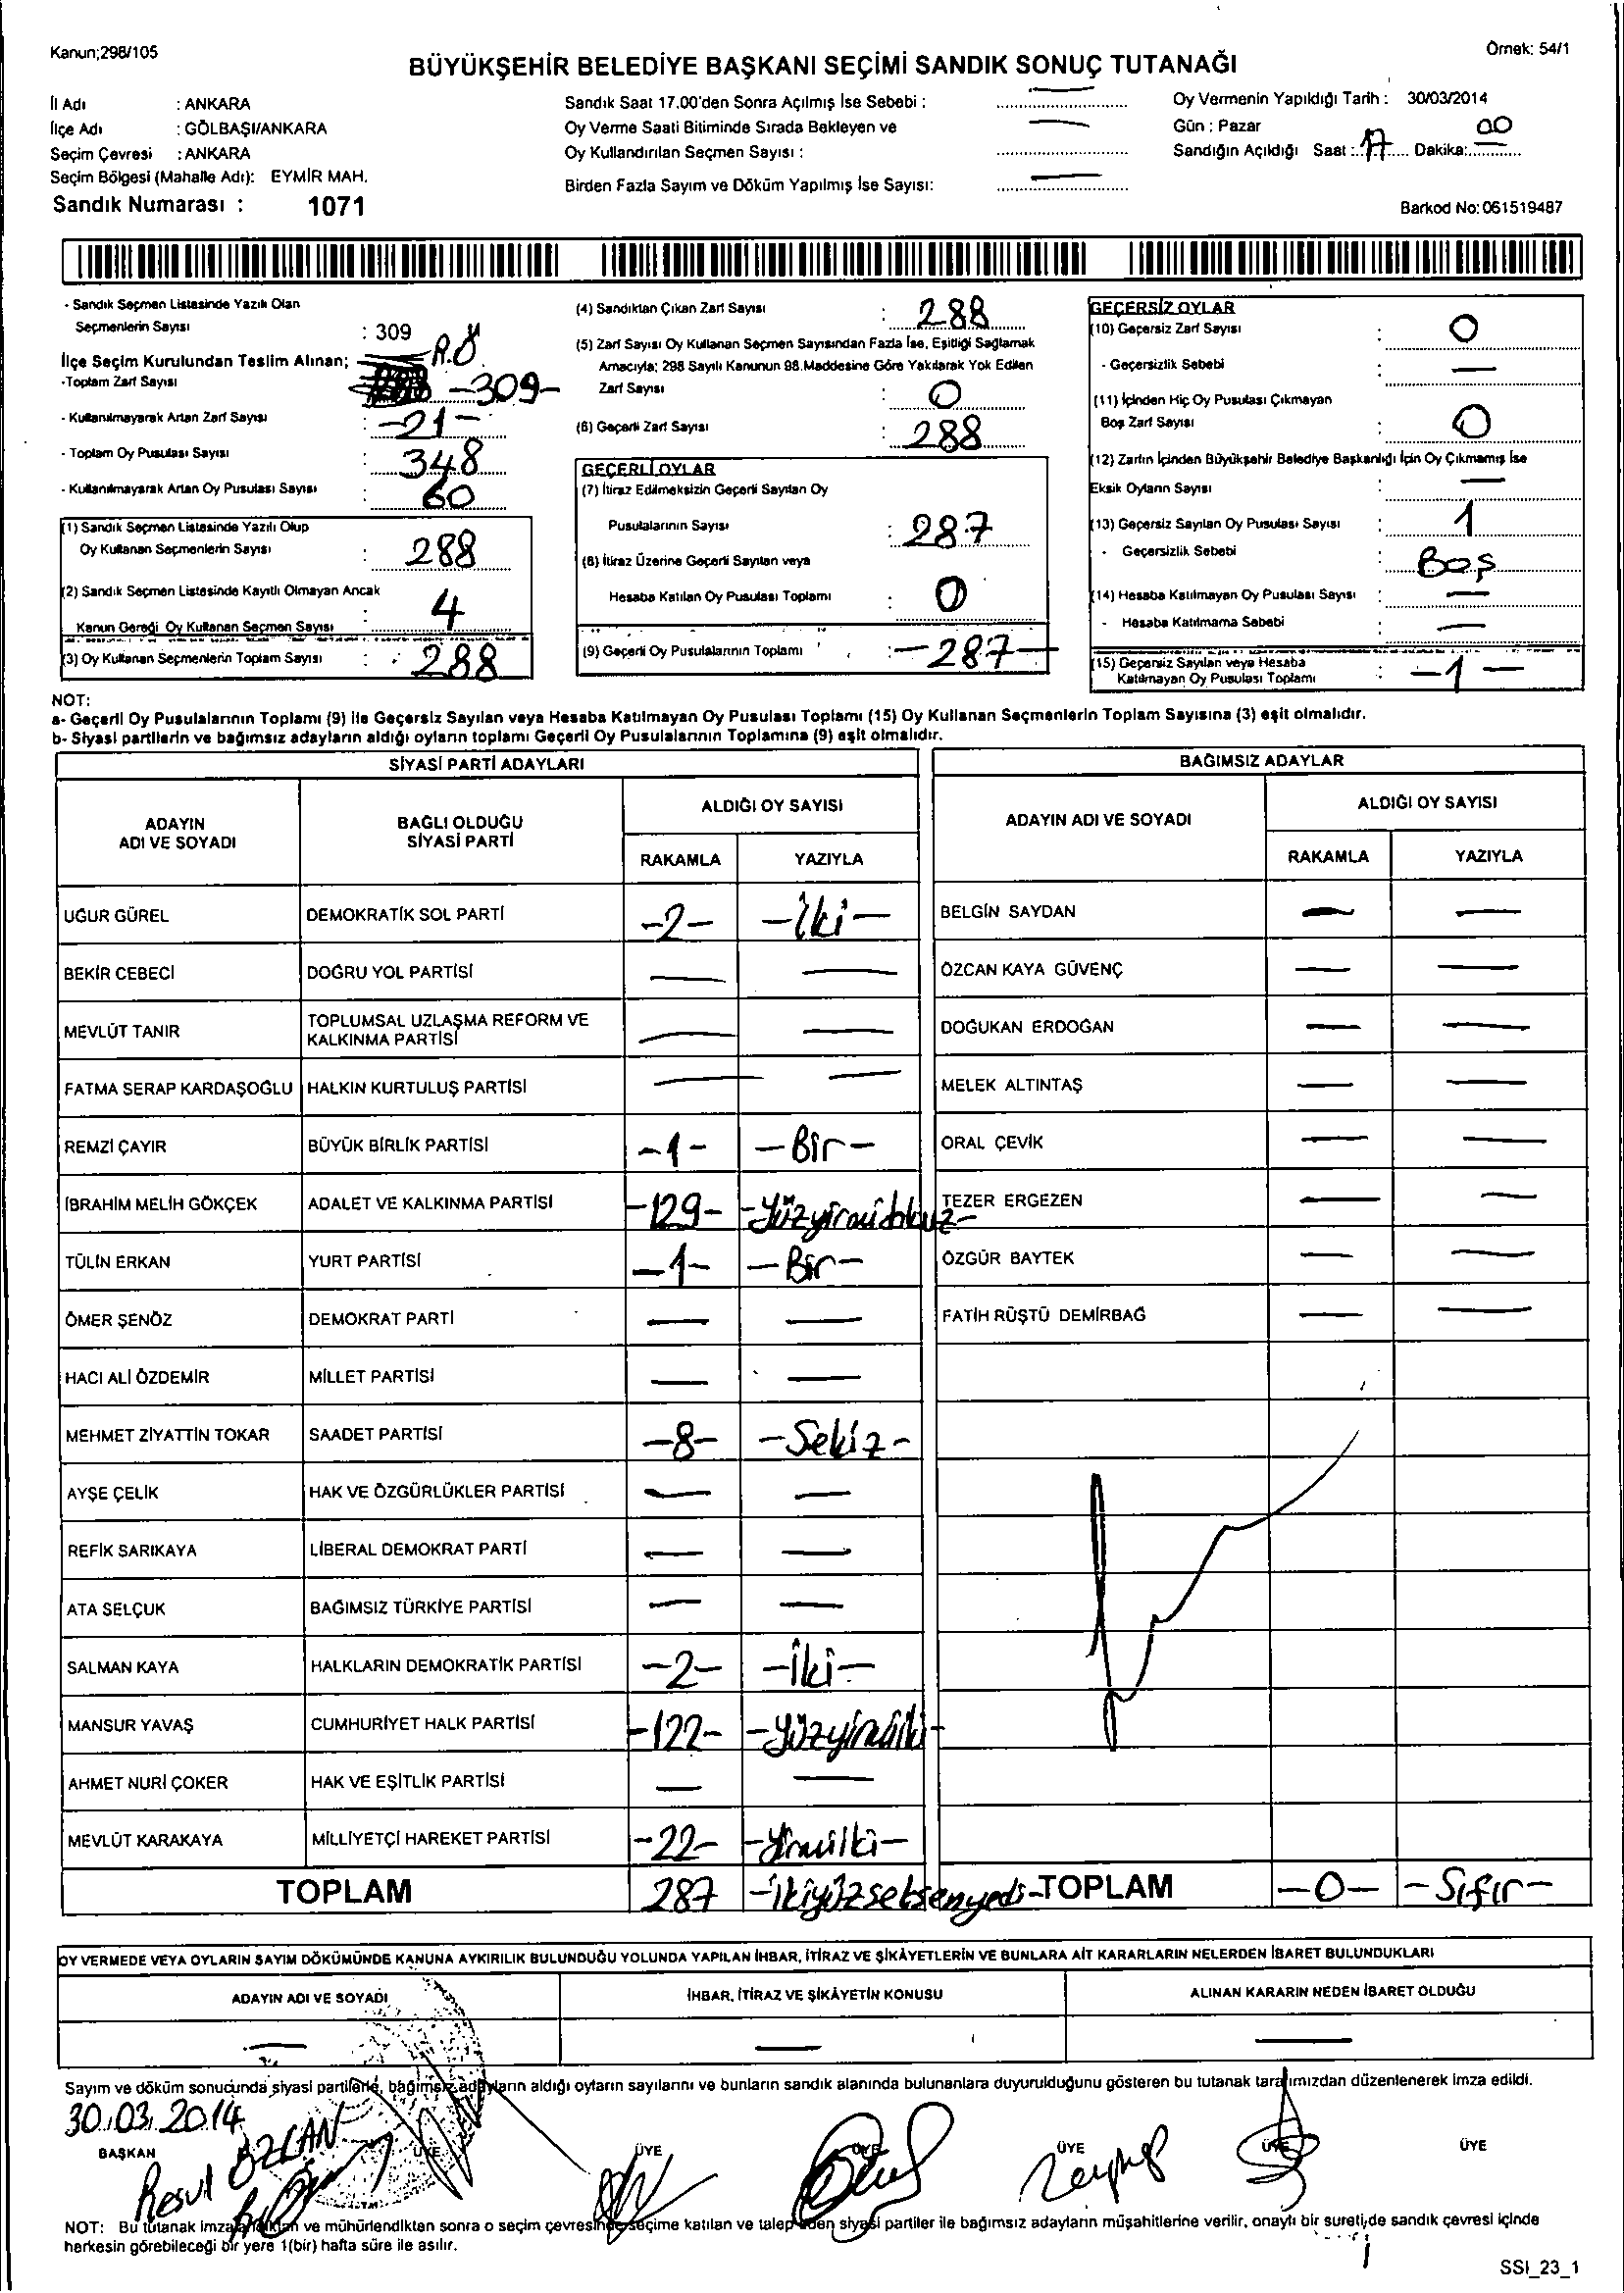 Kanun;298/105
Örnek: 54/1
BÜYÜKŞEHİR BELEDİYE BAŞKANI SEÇİMİ SANDIK SONUÇ TUTANAĞI
İl Adı : ANKARA
İlçe Adı : GÖLBAŞI/ANKARA
Seçim Çevresi : ANKARA
Seçim Bölgesi (Mahalle Adı): EYMİR MAH.
Sandık Numarası : 1071
Sandık Saat 17.00'den Sonra Açılmış İse Sebebi : —
Oy Verme Saati Bitiminde Sırada Bekleyen ve
Oy Kullandırılan Seçmen Sayısı : —
Birden Fazla Sayım ve Döküm Yapılmış İse Sayısı: —
Oy Vermenin Yapıldığı Tarih : 30/03/2014
Gün : Pazar
Sandığın Açıldığı Saat : 17 Dakika: 00
Barkod No: 061519487
- Sandık Seçmen Listesinde Yazılı Olan
Seçmenlerin Sayısı : 309
İlçe Seçim Kurulundan Teslim Alınan;
-Toplam Zarf Sayısı -309-
- Kullanılmayarak Artan Zarf Sayısı : -21-
- Toplam Oy Pusulası Sayısı : 348
- Kullanılmayarak Artan Oy Pusulası Sayısı : 60
(1) Sandık Seçmen Listesinde Yazılı Olup
Oy Kullanan Seçmenlerin Sayısı : 288
(2) Sandık Seçmen Listesinde Kayıtlı Olmayan Ancak
Kanun Gereği Oy Kullanan Seçmen Sayısı : 4
(3) Oy Kullanan Seçmenlerin Toplam Sayısı : 288
(4) Sandıktan Çıkan Zarf Sayısı : 288
(5) Zarf Sayısı Oy Kullanan Seçmen Sayısından Fazla İse, Eşitliği Sağlamak
Amacıyla; 298 Sayılı Kanunun 98.Maddesine Göre Yakılarak Yok Edilen
Zarf Sayısı : 0
(6) Geçerli Zarf Sayısı : 288
GEÇERLİ OYLAR
(7) İtiraz Edilmeksizin Geçerli Sayılan Oy
Pusulalarının Sayısı : 287
(8) İtiraz Üzerine Geçerli Sayılan veya
Hesaba Katılan Oy Pusulası Toplamı : 0
(9) Geçerli Oy Pusulalarının Toplamı : -287-
GEÇERSİZ OYLAR
(10) Geçersiz Zarf Sayısı : 0
- Geçersizlik Sebebi : —
(11) İçinden Hiç Oy Pusulası Çıkmayan
Boş Zarf Sayısı : 0
(12) Zarfın İçinden Büyükşehir Belediye Başkanlığı İçin Oy Çıkmamış İse
Eksik Oyların Sayısı : —
(13) Geçersiz Sayılan Oy Pusulası Sayısı : 1
- Geçersizlik Sebebi : Boş
(14) Hesaba Katılmayan Oy Pusulası Sayısı : —
- Hesaba Katılmama Sebebi : —
(15) Geçersiz Sayılan veya Hesaba
Katılmayan Oy Pusulası Toplamı : -1-
NOT:
a- Geçerli Oy Pusulalarının Toplamı (9) ile Geçersiz Sayılan veya Hesaba Katılmayan Oy Pusulası Toplamı (15) Oy Kullanan Seçmenlerin Toplam Sayısına (3) eşit olmalıdır.
b- Siyasi partilerin ve bağımsız adayların aldığı oyların toplamı Geçerli Oy Pusulalarının Toplamına (9) eşit olmalıdır.
SİYASİ PARTİ ADAYLARI
ADAYIN ADI VE SOYADI BAĞLI OLDUĞU SİYASİ PARTİ ALDIĞI OY SAYISI
RAKAMLA YAZIYLA
UĞUR GÜREL DEMOKRATİK SOL PARTİ -2- -İki-
BEKİR CEBECİ DOĞRU YOL PARTİSİ — —
MEVLÜT TANIR TOPLUMSAL UZLAŞMA REFORM VE KALKINMA PARTİSİ — —
FATMA SERAP KARDAŞOĞLU HALKIN KURTULUŞ PARTİSİ — —
REMZİ ÇAYIR BÜYÜK BİRLİK PARTİSİ -1- -Bir-
İBRAHİM MELİH GÖKÇEK ADALET VE KALKINMA PARTİSİ -129- -Yüzyirmidokuz-
TÜLİN ERKAN YURT PARTİSİ -1- -Bir-
ÖMER ŞENÖZ DEMOKRAT PARTİ — —
HACI ALİ ÖZDEMİR MİLLET PARTİSİ — —
MEHMET ZİYATTİN TOKAR SAADET PARTİSİ -8- -Sekiz-
AYŞE ÇELİK HAK VE ÖZGÜRLÜKLER PARTİSİ — —
REFİK SARIKAYA LİBERAL DEMOKRAT PARTİ — —
ATA SELÇUK BAĞIMSIZ TÜRKİYE PARTİSİ — —
SALMAN KAYA HALKLARIN DEMOKRATİK PARTİSİ -2- -İki-
MANSUR YAVAŞ CUMHURİYET HALK PARTİSİ -122- -Yüzyirmiiki-
AHMET NURİ ÇOKER HAK VE EŞİTLİK PARTİSİ — —
MEVLÜT KARAKAYA MİLLİYETÇİ HAREKET PARTİSİ -22- -Yirmiiki-
TOPLAM 287 -İkiyüzseksenyedi-
BAĞIMSIZ ADAYLAR
ADAYIN ADI VE SOYADI ALDIĞI OY SAYISI
RAKAMLA YAZIYLA
BELGİN SAYDAN — —
ÖZCAN KAYA GÜVENÇ — —
DOĞUKAN ERDOĞAN — —
MELEK ALTINTAŞ — —
ORAL ÇEVİK — —
TEZER ERGEZEN — —
ÖZGÜR BAYTEK — —
FATİH RÜŞTÜ DEMİRBAĞ — —
TOPLAM -0- -Sıfır-
OY VERMEDE VEYA OYLARIN SAYIM DÖKÜMÜNDE KANUNA AYKIRILIK BULUNDUĞU YOLUNDA YAPILAN İHBAR, İTİRAZ VE ŞİKÂYETLERİN VE BUNLARA AİT KARARLARIN NELERDEN İBARET BULUNDUKLARI
ADAYIN ADI VE SOYADI İHBAR, İTİRAZ VE ŞİKÂYETİN KONUSU ALINAN KARARIN NEDEN İBARET OLDUĞU
— — —
Sayım ve döküm sonucunda siyasi partilerle, bağımsız adayların aldığı oyların sayılarını ve bunların sandık alanında bulunanlara duyurulduğunu gösteren bu tutanak tarafımızdan düzenlenerek imza edildi.
30.03.2014
BAŞKAN ÜYE ÜYE ÜYE ÜYE ÜYE ÜYE
Resul
NOT: Bu tutanak imzalandıktan ve mühürlendikten sonra o seçim çevresinde seçime katılan ve talep eden siyasi partiler ile bağımsız adayların müşahitlerine verilir, onaylı bir sureti de sandık çevresi içinde
herkesin görebileceği bir yere 1(bir) hafta süre ile asılır.
SSI_23_1